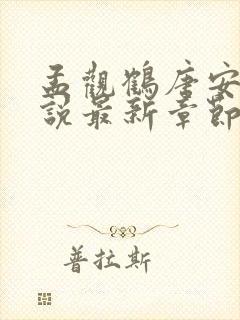 孟觀鶴唐安
說最新章節
普拉斯